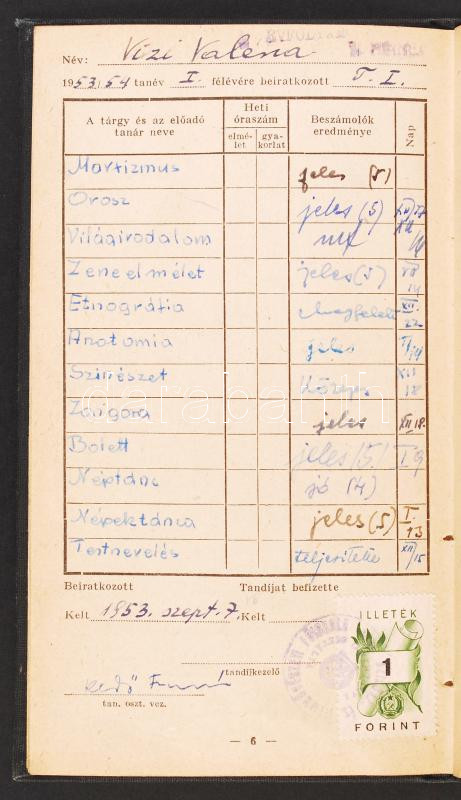 Név: Vizi Valéria
1953/54 tanév I. félévére beiratkozott T. I.
A tárgy és az előadó tanár neve | Heti óraszám | Beszámolók eredménye | Nap
elmélet | gyakorlat
Marxizmus jeles (5)
Orosz jeles (5)
Világirodalom
Zeneelmélet jeles (5)
Etnográfia Megfelelt XII. 22
Anatomia jeles
Szinészet közép. XII 18
Zongora jeles XII 18.
Balett jeles (5) I 9
Néptánc jó (4)
Népektánca jeles (5) I. 13
Testnevelés teljesitette XII/15
darabanth
Beiratkozott Tandíjat befizette
Kelt 1953. szept. 7. Kelt
tandíjkezelő
tan. oszt. vez.
ILLETÉK
1
FORINT
— 6 —